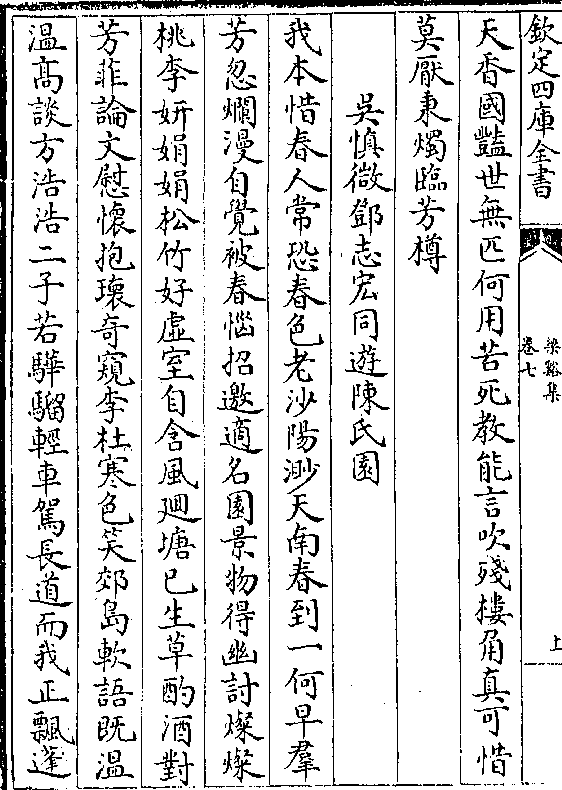 欽定四庫全書
梁谿集
卷七
上
天香國豔世無匹何用苦死教能言吹殘樓角真可惜
莫厭秉燭臨芳樽
吳慎微鄧志宏同遊陳氏園
我本惜春人常恐春色老沙陽渺天南春到一何早羣
芳忽爛漫自覺被春惱招邀適名園景物得幽討燦燦
桃李妍娟娟松竹好虛室自含風廻塘已生草酌酒對
芳菲論文慰懷抱瓌奇窺李杜寒色笑郊島軟語既温
温高談方浩浩二子若驊騮輕車駕長道而我正飄蓬